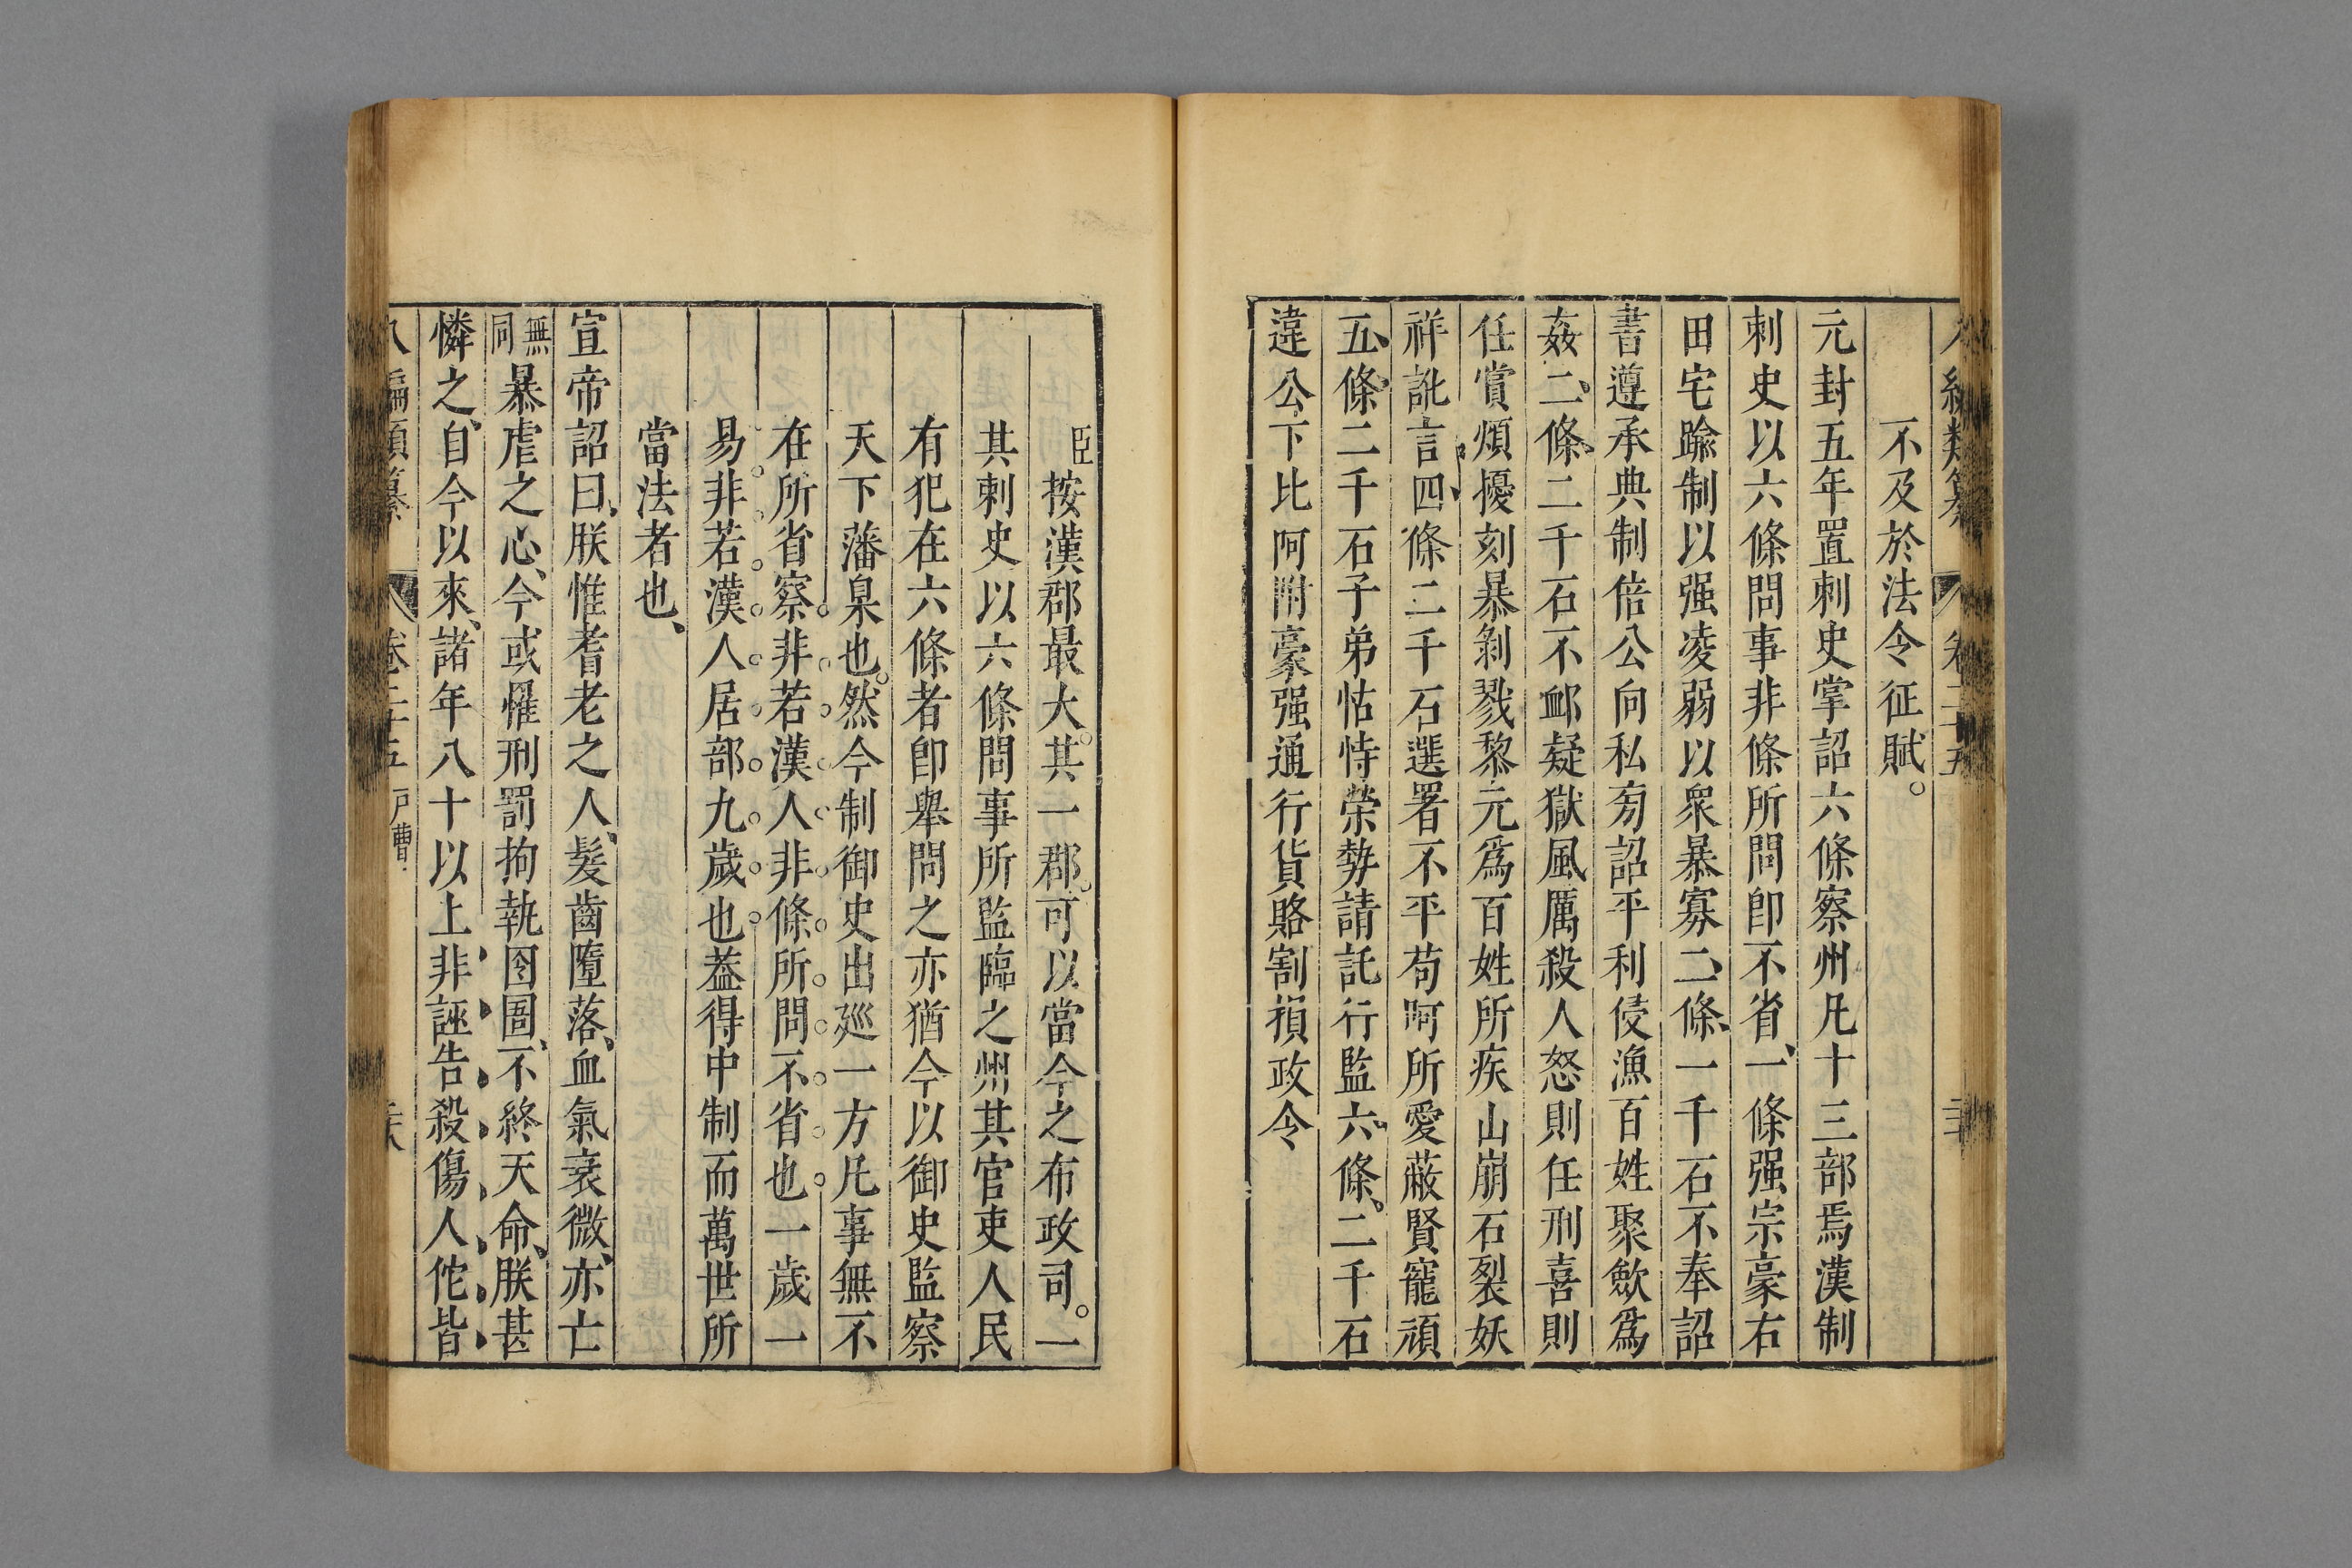 不及於法令征賦。
元封五年置刺史掌詔六條察州凡十三部焉漢制
刺史以六條問事非條所問卽不省、一條强宗豪右
田宅踰制以强凌弱以衆暴寡二、條、一千石不奉詔
書遵承典制倍公向私旁詔平利侵漁百姓聚歛爲
姦二、條、二千石不衈疑獄風厲殺人怒則任刑喜則
任賞煩擾刻暴剝戮黎元爲百姓所疾山崩石裂妖
祥訛言、四、條二千石選署不平苟阿所愛蔽賢寵頑
五、條、二千石子弟怙恃榮勢請託行監六、條、二千石
違公下比阿附豪强通行貨賂割損政令
臣按漢郡最大。其一郡。可以當今之布政司。一
其刺史以六條問事所監臨之州其官吏人民
有犯在六條者卽舉問之亦猶今以御史監察
天下藩臬也。然今制御史出廵一方凡事無不
在所省察。非。若。漢。人。非。條。所。問。不。省。也。一歲一
易。非。若。漢。人。居。部。九。歲。也。葢得中制而萬世所
當法者也、
宣帝詔曰、朕惟耆老之人、髮齒墮落、血氣衰微、亦亡
無同暴虐之心、今或罹刑罰拘執囹圄、不終天命、朕甚
憐之、自今以來、諸年八十以上非、誣、告、殺、傷、人、佗、皆、
八編類纂 卷二十五 戶曹